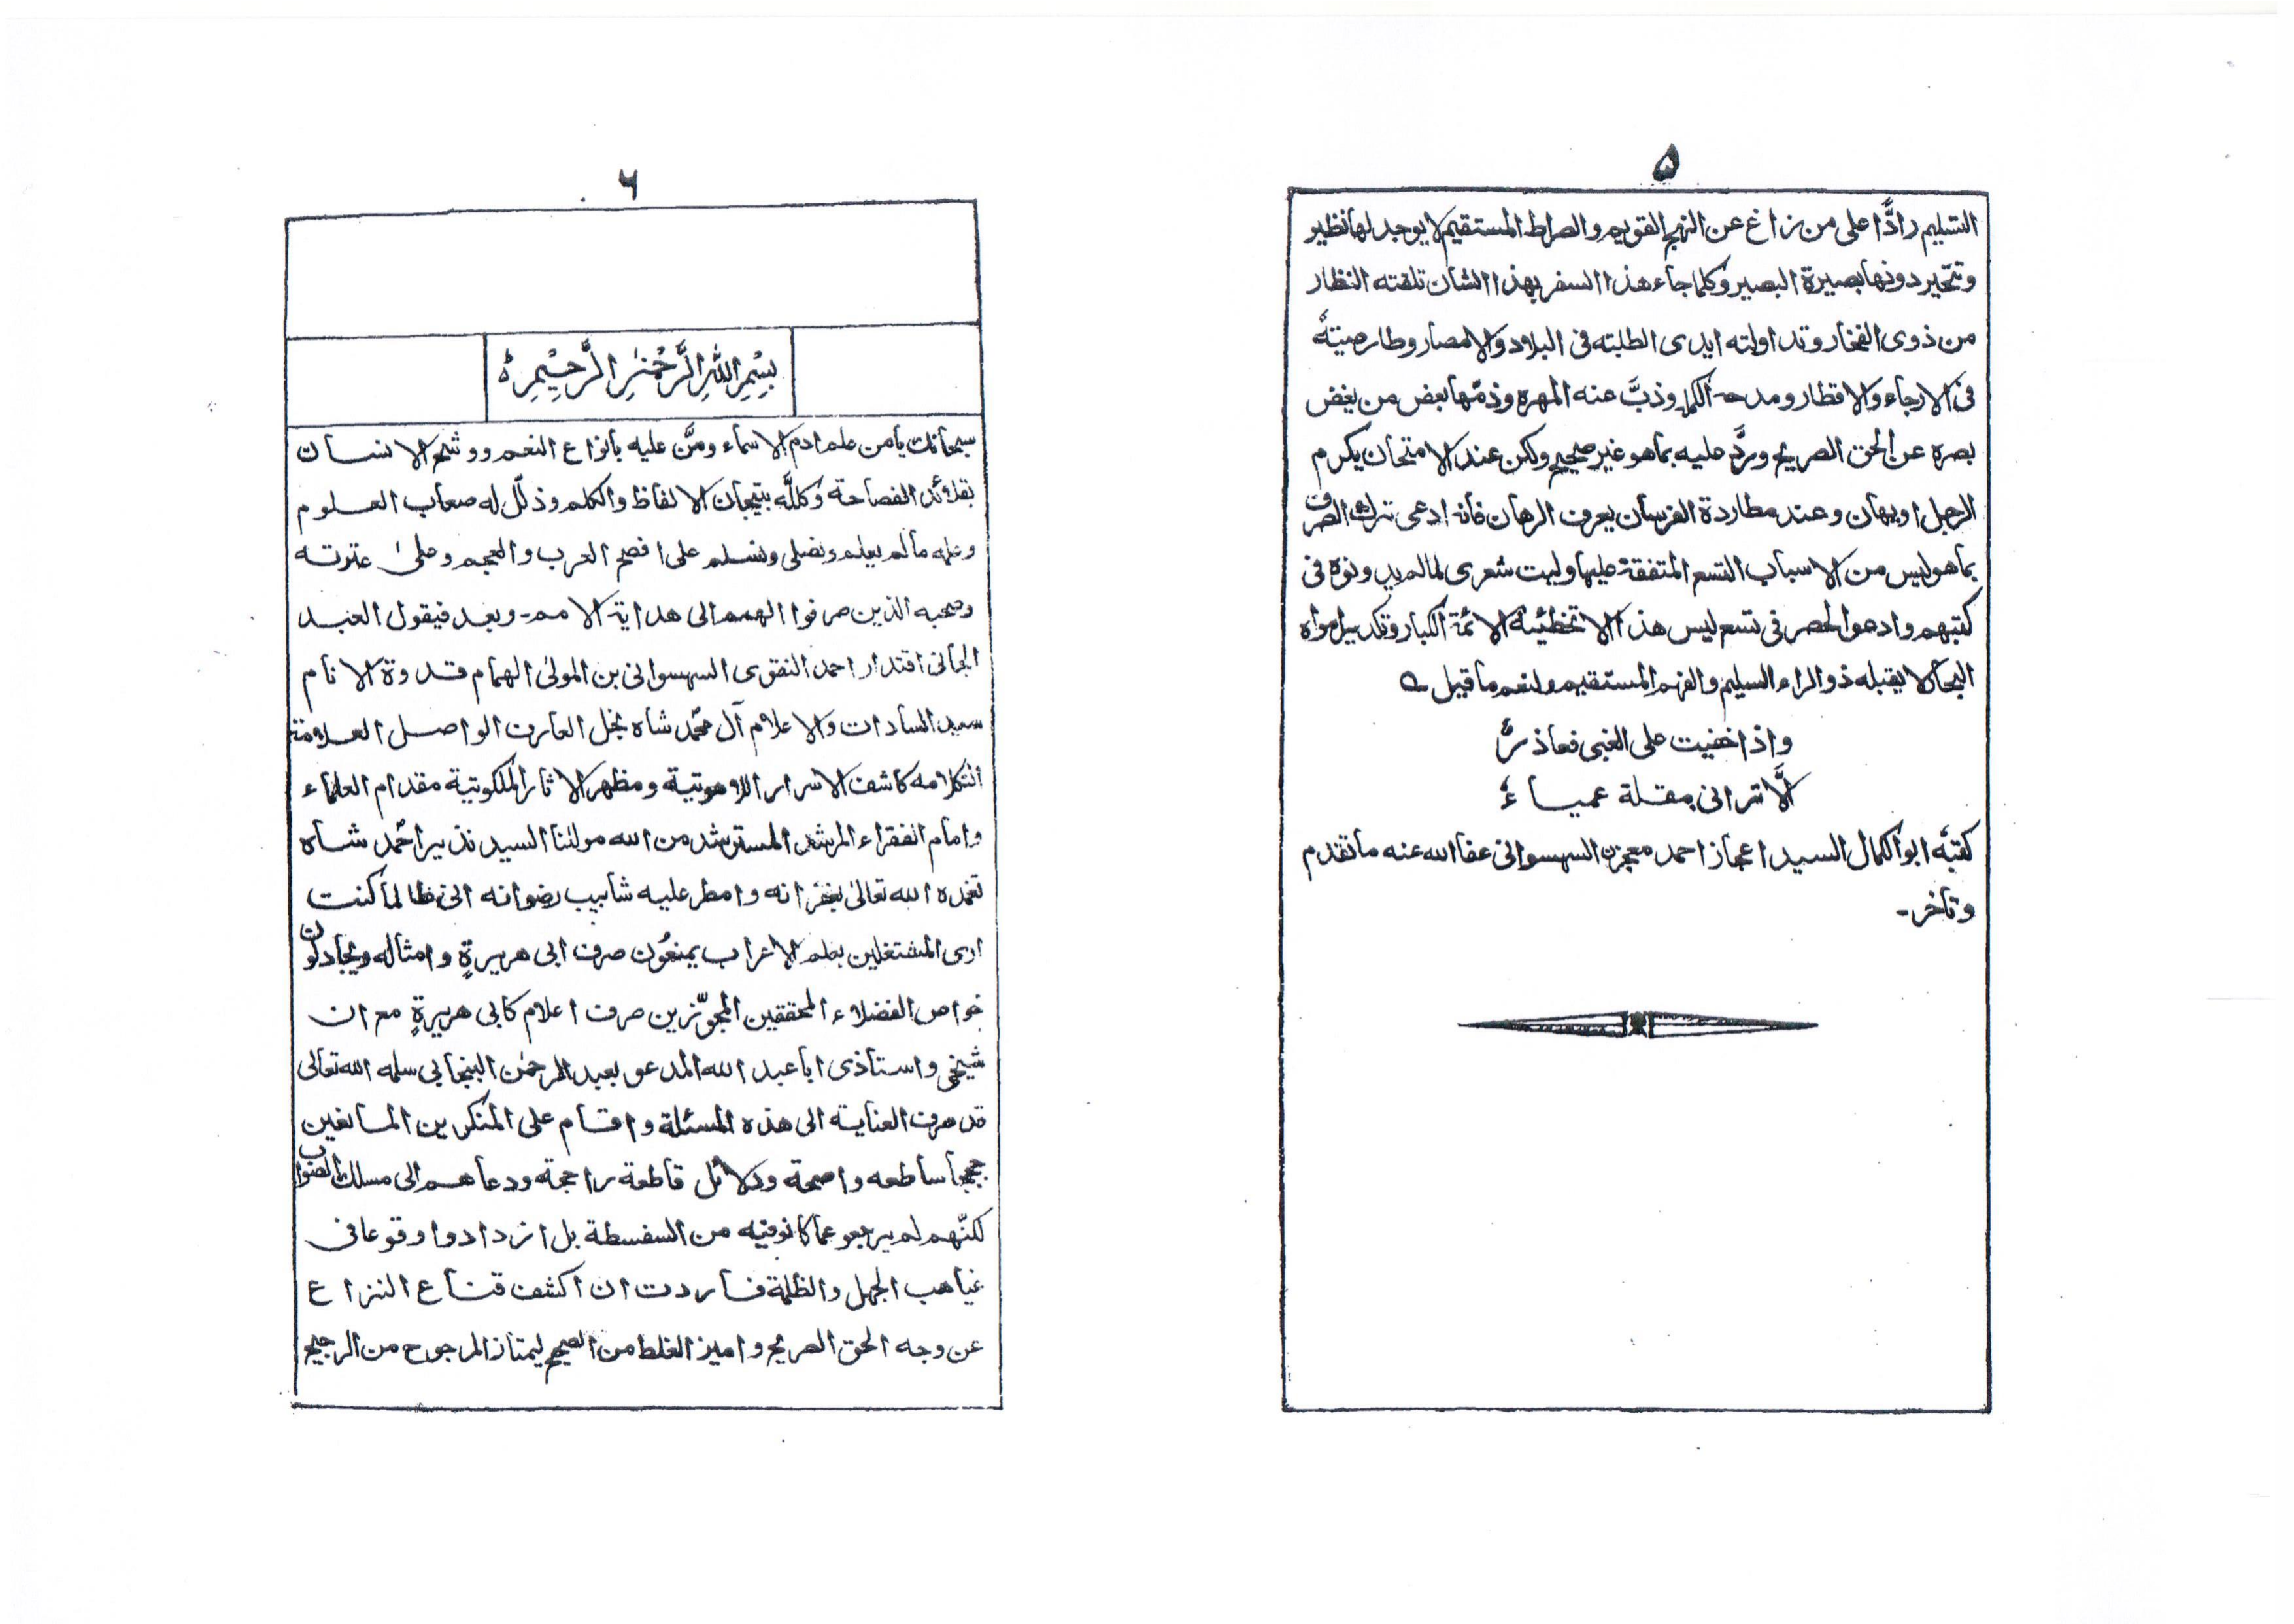 ۵
التسليم رادًّا على من زاغ عن النهج القويم والصراط المستقيم لا يوجد لها نظير
وتتحير دونها بصيرة البصير وكلما جاء هذا السفر بهذا الشان تلقته النظار
من ذوى الفخار وتداولته ايدى الطلبته فى البلاد والامصار وطار صيتهٗ
فى الارجاء والاقطار ومدحه الكملا وذبَّ عنه المهره وذمّها بعض من بغض
بصره عن الحق الصريح وردَّ عليه بما هو غير صحيح ولكن عند الامتحان يكرم
الرجل او يهان وعند مطاردة الفرسان يعرف الرهان فانه ادعى تترك الصرف
بما هو ليس من الاسباب التسع المتفقة عليها وليت شعرى لما لم يدونوه فى
كتبهم وادعوا الحصر فى تسع ليس هذا الا تخطئة الائمة الكبار وتكذيبا
البحالا يقبله ذو الراء السليم والفهم المستقيم ولنعم ما قيل ؎
واذا خفيت على الغبى فعاذرٌ
الَّا ترانى مقلة عمياءٗ
كتبَّه ابو الكمال السيد اعجاز احمد معجزن السهسوانى عفا الله عنه ما تقدم
وتأخر۔
۶
بِسْمِ اللّٰهِ الرَّحْمٰنِ الرَّحِيْمِ
سبحانك يا من علم ادم الاسماء ومنَّ عليه بانواع النعم ووشح الانسان
بقلائد الفصاحة وكلَّله بتيجان الالفاظ والكلم وذلّل له صعاب العلوم
وعلمه مالم يعلم ونصلى ونسلم على افصح العرب والعجم وعلىٰ عترته
وصحبه الذين صرفوا الهمم الى هداية الامم۔ وبعد فيقول العبد
الجانى اقتدار احمد النقوى السهسوانى بن المولىٰ الهمام قدوة الانام
سيد السادات والاعلام آل محمّد شاه نجل العارف الواصل العلامة
التكلامه كاشف الاسرار اللاهوتية ومظهر الاثار الملكوتية مقدام العلماء
وامام الفقراء المرشد المسترشد من الله مولٰنا السيد نذير احمّد شاه
تغمده الله تعالىٰ بغفرانه وامطر عليه شابيب رضوانه انى طالما كنت
ارى المشتغلين بعلم الاعراب يمنعُون صرف ابى هريرةٍ وامثاله ويجادلون
خواص الفضلاء المحققين المجوّزين صرف اعلام كابى هريرةٍ مع ان
شيخى واستاذى ابا عبد الله المدعو بعبد الرحمٰن البنجابى سلمه الله تعالى
قد صرف العناية الى هذه المسئلة واقام على المنكرين المانعين
حججا ساطعه واضحة ودلائل قاطعة راجحة ودعاهم الى مسلك الصواب
لكنّهم لم يرجعو عما كانو فيه من السفسطة بل ازدادوا وقوعا فى
غياهب الجهل والظلمة فاردت ان اكشف قناع النزاع
عن وجه الحق الصريح واميز الغلط من الصحيح ليمتاز المرجوح من الرجيح